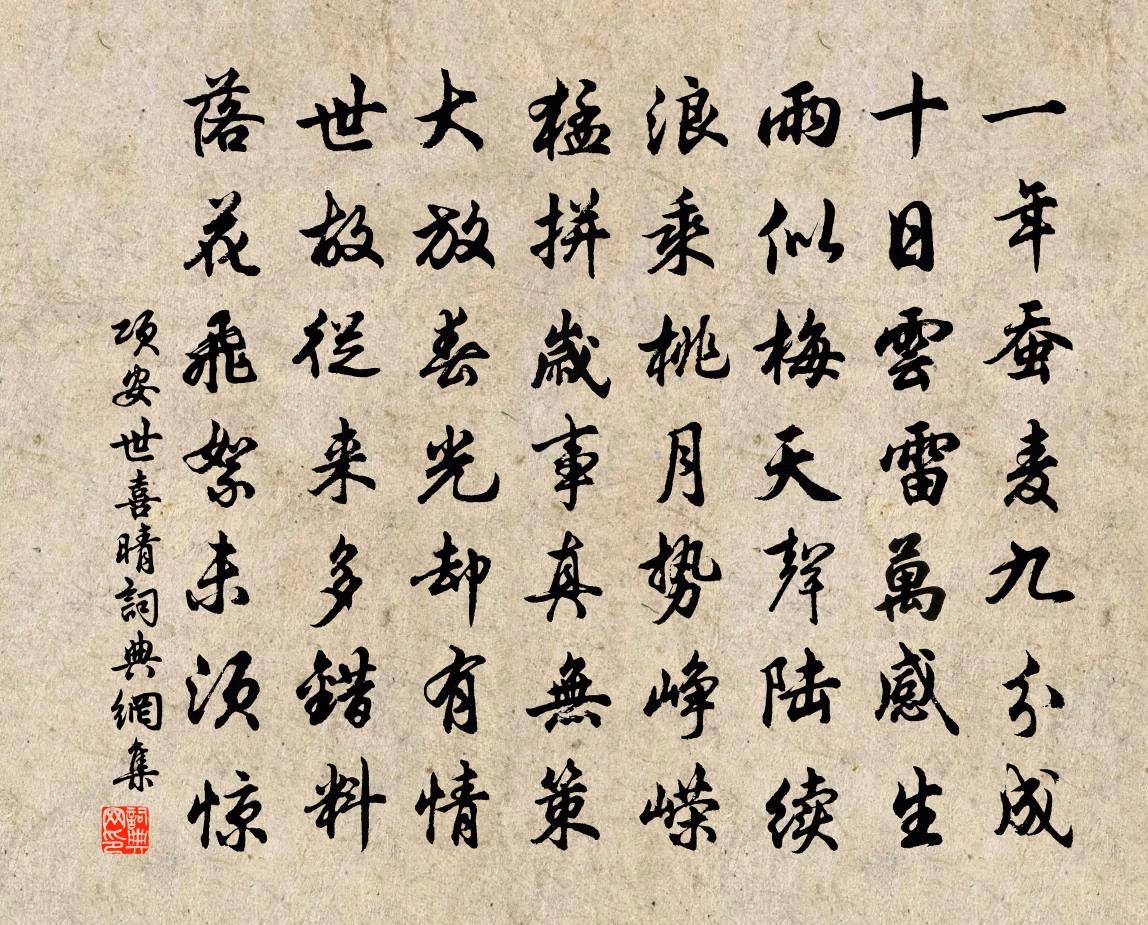 一年蚕麦九分成
十日雲雷萬感生
雨似梅天聲陆续
浪乘桃月势峥嵘
猛拼歲事真無策
大放春光却有情
世故從来多錯料
落花飛絮未須惊
项安世喜晴詞典網集
詞典網印